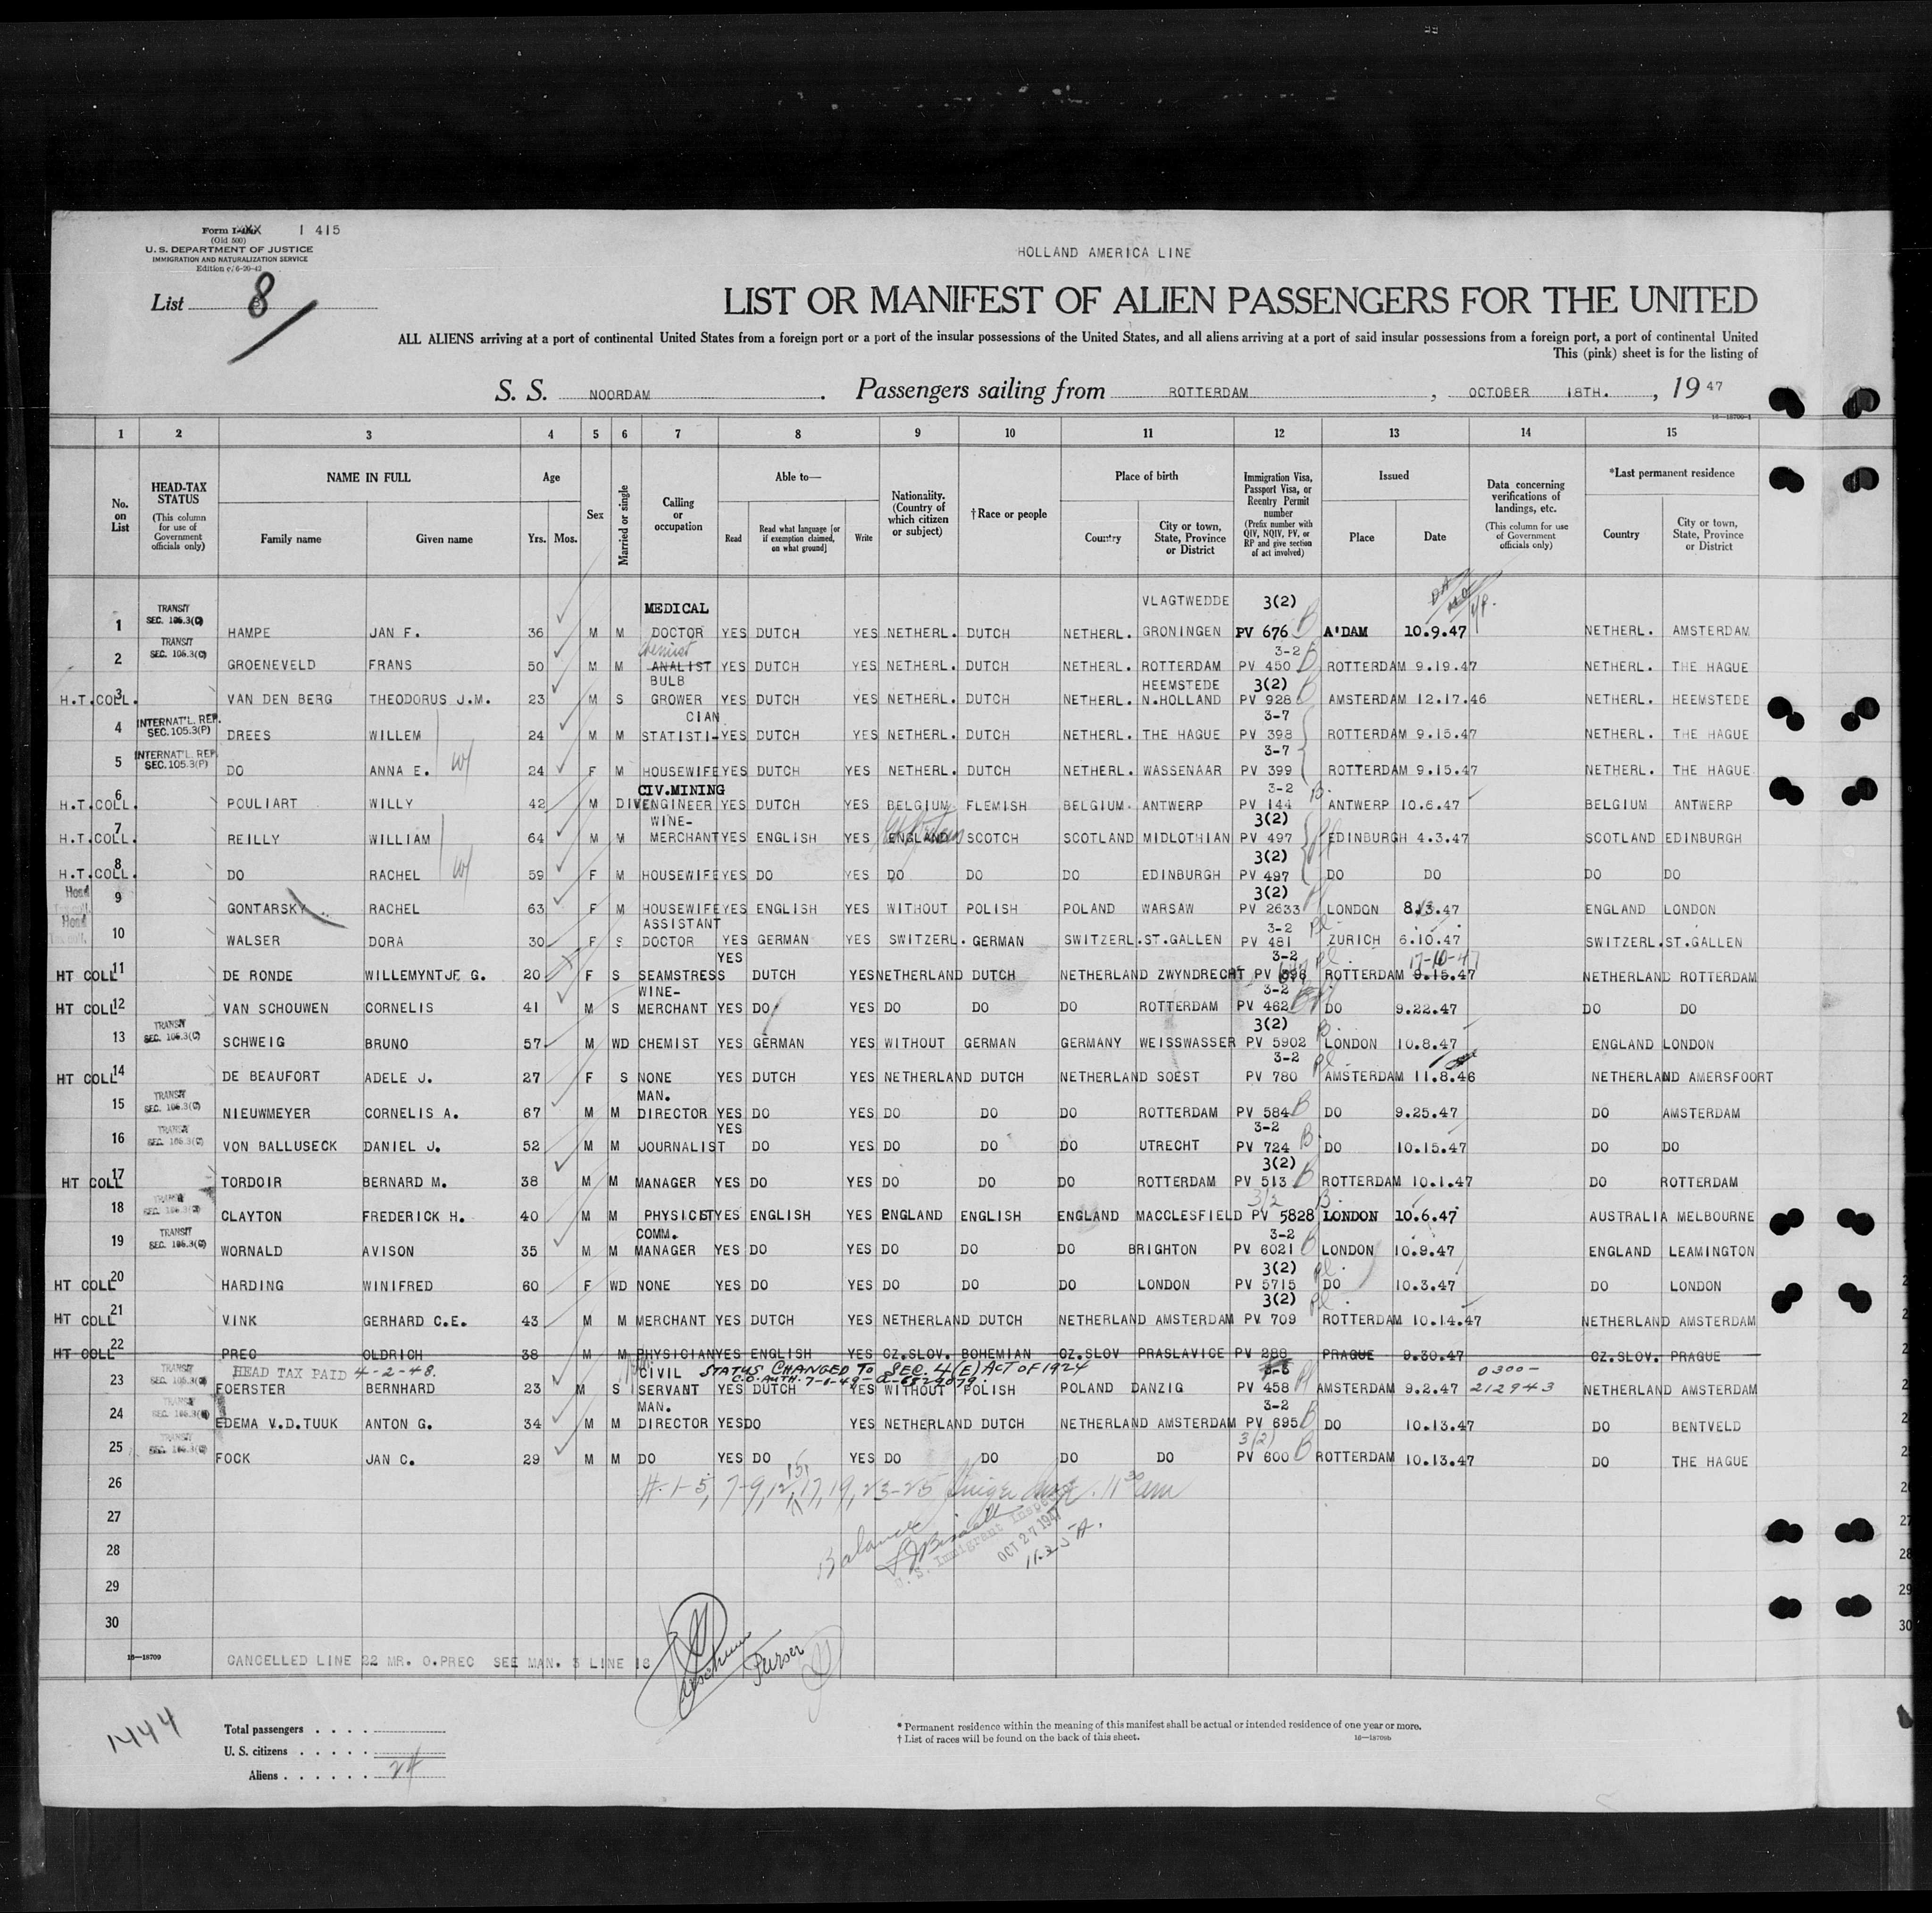 Form I-                I 415
(Old 500)
U. S. DEPARTMENT OF JUSTICE
IMMIGRATION AND NATURALIZATION SERVICE
HOLLAND AMERICA LINE
List 8
LIST OR MANIFEST OF ALIEN PASSENGERS FOR THE UNITED
ALL ALIENS arriving at a port of continental United States from a foreign port or a port of the insular possessions of the United States, and all aliens arriving at a port of said insular possessions from a foreign port, a port of continental United
This (pink) sheet is for the listing of
S. S. NOORDAM. Passengers sailing from ROTTERDAM, OCTOBER 18TH., 19 47
1 2 3 4 5 6 7 8 9 10 11 12 13 14 15
No. on List | HEAD-TAX STATUS (This column for use of Government officials only) | NAME IN FULL Family name Given name | Age Yrs. Mos. | Sex | Married or single | Calling or occupation | Able to— Read Read what language [or if exemption claimed, on what ground] Write | Nationality. (Country of which citizen or subject) | †Race or people | Place of birth Country City or town, State, Province or District | Immigration Visa, Passport Visa, or Reentry Permit number (Prefix number with QIV, NQIV, PV, or RP and give section of act involved) | Issued Place Date | Data concerning verifications of landings, etc. (This column for use of Government officials only) | *Last permanent residence Country City or town, State, Province or District
1 TRANSIT SEC. 105.3(C) HAMPE JAN F. 36 M M MEDICAL DOCTOR YES DUTCH YES NETHERL. DUTCH NETHERL. VLAGTWEDDE GRONINGEN 3(2) PV 676 A'DAM 10.9.47 NETHERL. AMSTERDAM
2 TRANSIT SEC. 105.3(C) GROENEVELD FRANS 50 M M ANALIST Chemist YES DUTCH YES NETHERL. DUTCH NETHERL. ROTTERDAM 3-2 PV 450 ROTTERDAM 9.19.47 NETHERL. THE HAGUE
3 H.T.COLL. VAN DEN BERG THEODORUS J.M. 23 M S BULB GROWER YES DUTCH YES NETHERL. DUTCH NETHERL. HEEMSTEDE N.HOLLAND 3(2) PV 928 AMSTERDAM 12.17.46 NETHERL. HEEMSTEDE
4 INTERNAT'L. REP. SEC.105.3(P) DREES WILLEM 24 M M STATISTI-CIAN YES DUTCH YES NETHERL. DUTCH NETHERL. THE HAGUE 3-7 PV 398 ROTTERDAM 9.15.47 NETHERL. THE HAGUE
5 INTERNAT'L. REP. SEC.105.3(P) DO ANNA E. 24 F M HOUSEWIFE YES DUTCH YES NETHERL. DUTCH NETHERL. WASSENAAR 3-7 PV 399 ROTTERDAM 9.15.47 NETHERL. THE HAGUE
6 H.T.COLL. POULIART WILLY 42 M DIV CIV.MINING ENGINEER YES DUTCH YES BELGIUM FLEMISH BELGIUM ANTWERP 3-2 PV 144 ANTWERP 10.6.47 BELGIUM ANTWERP
7 H.T.COLL. REILLY WILLIAM 64 M M WINE-MERCHANT YES ENGLISH YES ENGLAND SCOTCH SCOTLAND MIDLOTHIAN 3(2) PV 497 EDINBURGH 4.3.47 SCOTLAND EDINBURGH
8 H.T.COLL. DO RACHEL 59 F M HOUSEWIFE YES DO YES DO DO DO EDINBURGH 3(2) PV 497 DO DO DO DO
9 Head Tax coll. GONTARSKY RACHEL 63 F M HOUSEWIFE YES ENGLISH YES WITHOUT POLISH POLAND WARSAW 3(2) PV 2633 LONDON 8.13.47 ENGLAND LONDON
10 Head Tax coll. WALSER DORA 30 F S ASSISTANT DOCTOR YES GERMAN YES SWITZERL. GERMAN SWITZERL. ST.GALLEN 3-2 PV 481 ZURICH 6.10.47 SWITZERL. ST.GALLEN
11 HT COLL DE RONDE WILLEMYNTJE G. 20 F S SEAMSTRESS YES DUTCH YES NETHERLAND DUTCH NETHERLAND ZWYNDRECHT 3-2 PV ROTTERDAM 9.15.47 17-10-47 NETHERLAND ROTTERDAM
12 HT COLL VAN SCHOUWEN CORNELIS 41 M S WINE-MERCHANT YES DO YES DO DO DO ROTTERDAM 3-2 PV 462 DO 9.22.47 DO DO
13 TRANSIT SEC. 105.3(C) SCHWEIG BRUNO 57 M WD CHEMIST YES GERMAN YES WITHOUT GERMAN GERMANY WEISSWASSER 3(2) PV 5902 LONDON 10.8.47 ENGLAND LONDON
14 HT COLL DE BEAUFORT ADELE J. 27 F S NONE YES DUTCH YES NETHERLAND DUTCH NETHERLAND SOEST 3-2 PV 780 AMSTERDAM 11.8.46 NETHERLAND AMERSFOORT
15 TRANSIT SEC. 105.3(C) NIEUWMEYER CORNELIS A. 67 M M MAN. DIRECTOR YES DO YES DO DO DO ROTTERDAM PV 584 DO 9.25.47 DO AMSTERDAM
16 TRANSIT SEC. 105.3(C) VON BALLUSECK DANIEL J. 52 M M JOURNALIST YES DO YES DO DO DO UTRECHT 3-2 PV 724 DO 10.15.47 DO DO
17 HT COLL TORDOIR BERNARD M. 38 M M MANAGER YES DO YES DO DO DO ROTTERDAM 3(2) PV 513 ROTTERDAM 10.1.47 DO ROTTERDAM
18 TRANSIT SEC. 105.3(C) CLAYTON FREDERICK H. 40 M M PHYSICIST YES ENGLISH YES ENGLAND ENGLISH ENGLAND MACCLESFIELD 3/2 PV 5828 LONDON 10.6.47 AUSTRALIA MELBOURNE
19 TRANSIT SEC. 105.3(C) WORNALD AVISON 35 M M COMM. MANAGER YES DO YES DO DO DO BRIGHTON 3-2 PV 6021 LONDON 10.9.47 ENGLAND LEAMINGTON
20 HT COLL HARDING WINIFRED 60 F WD NONE YES DO YES DO DO DO LONDON 3(2) PV 5715 DO 10.3.47 DO LONDON
21 HT COLL VINK GERHARD C.E. 43 M M MERCHANT YES DUTCH YES NETHERLAND DUTCH NETHERLAND AMSTERDAM 3(2) PV 709 ROTTERDAM 10.14.47 NETHERLAND AMSTERDAM
22 HT COLL PREC OLDRICH 38 M M PHYSICIAN YES ENGLISH YES CZ.SLOV. BOHEMIAN CZ.SLOV PRASLAVICE PV 288 PRAGUE 9.30.47 CZ.SLOV. PRAGUE
HEAD TAX PAID 4-2-48. STATUS CHANGED TO SEC. 4(E) ACT OF 1924 0300-
23 TRANSIT SEC. 105.3(C) FOERSTER BERNHARD 23 M S CIVIL SERVANT YES DUTCH YES WITHOUT POLISH POLAND DANZIG PV 458 AMSTERDAM 9.2.47 212943 NETHERLAND AMSTERDAM
24 TRANSIT SEC. 105.3(C) EDEMA V.D.TUUK ANTON G. 34 M M MAN. DIRECTOR YES DO YES NETHERLAND DUTCH NETHERLAND AMSTERDAM 3-2 PV 695 DO 10.13.47 DO BENTVELD
25 TRANSIT SEC. 105.3(C) FOCK JAN C. 29 M M DO YES DO YES DO DO DO DO 3(2) PV 600 ROTTERDAM 10.13.47 DO THE HAGUE
26
27
28
29
30
Balance
U. S. Immigrant Inspector
OCT 27 1947
Purser
16—18709 CANCELLED LINE 22 MR. O.PREC SEE MAN. 3 LINE 18
1444
Total passengers . . . .
U. S. citizens . . . . .
Aliens . . . . . . 24
* Permanent residence within the meaning of this manifest shall be actual or intended residence of one year or more.
† List of races will be found on the back of this sheet.